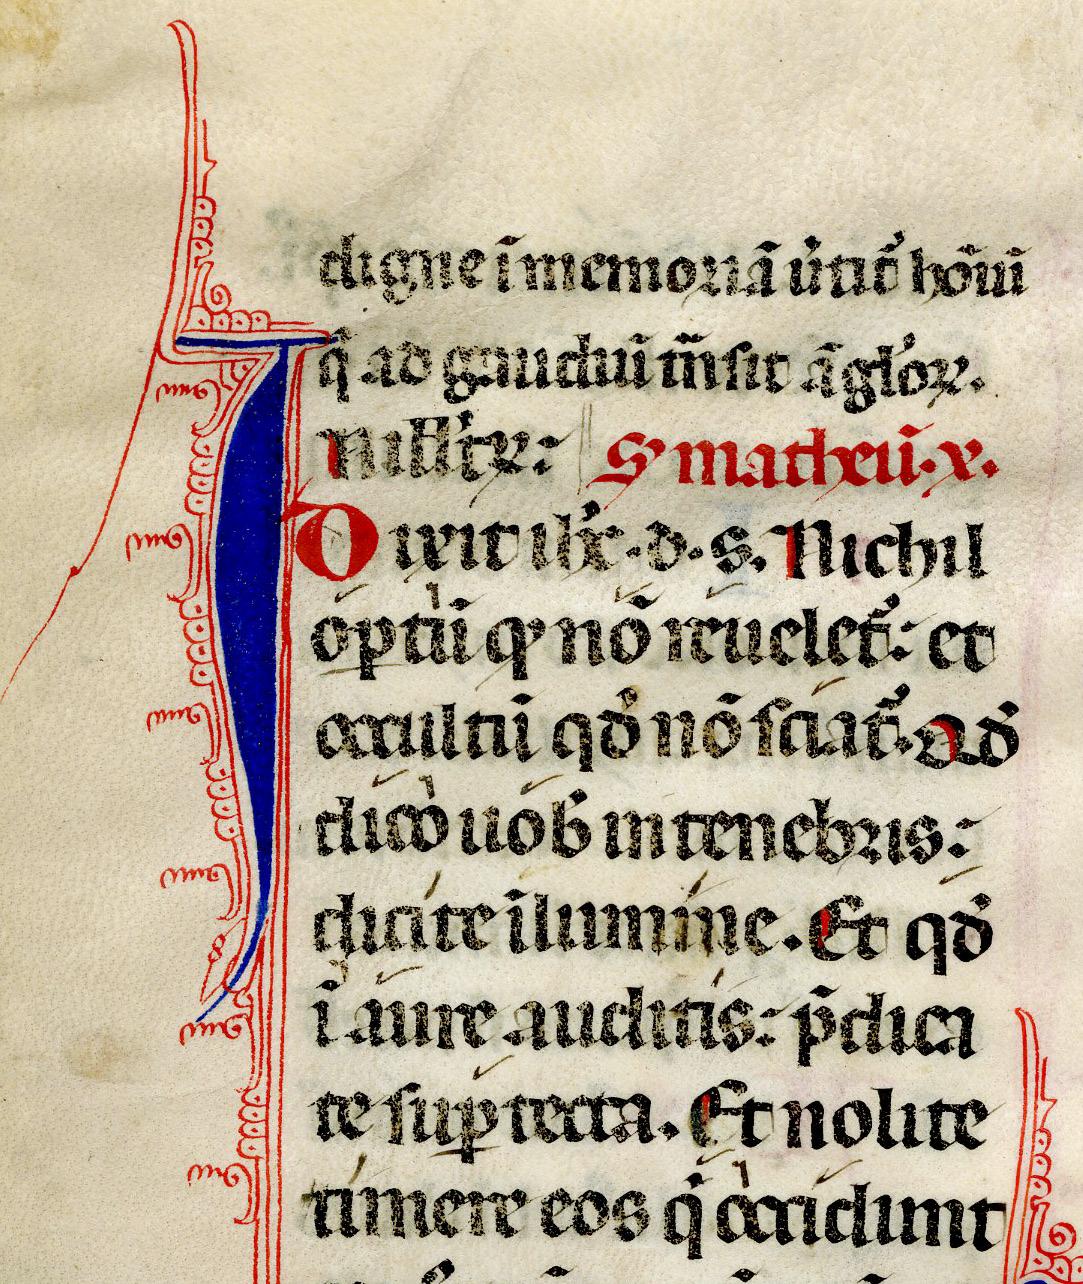 digne ī memoriā ūtit᷑ hōīū
q̄ ad gaudiuī tn̄sit āglo᷑ꝝ.
S᷑ matheū·x·
Dixit ihc̄·d·s. Nichil
op̄tū qͥ nō reuelet᷑: et
occultū qd̄ nō sciat᷑. Qd̄
dico uob̄ in tenebris:
dicite ī lumine. Et qd̄
ī aure auditis: p̄dica
te suꝑ tecta. Et nolite
timere eos qͥ occidunt